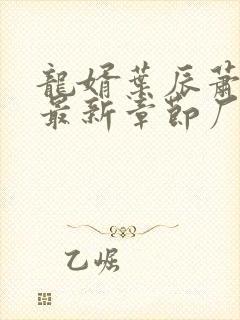 龍婿葉辰蕭
最新章節厂
乙崛